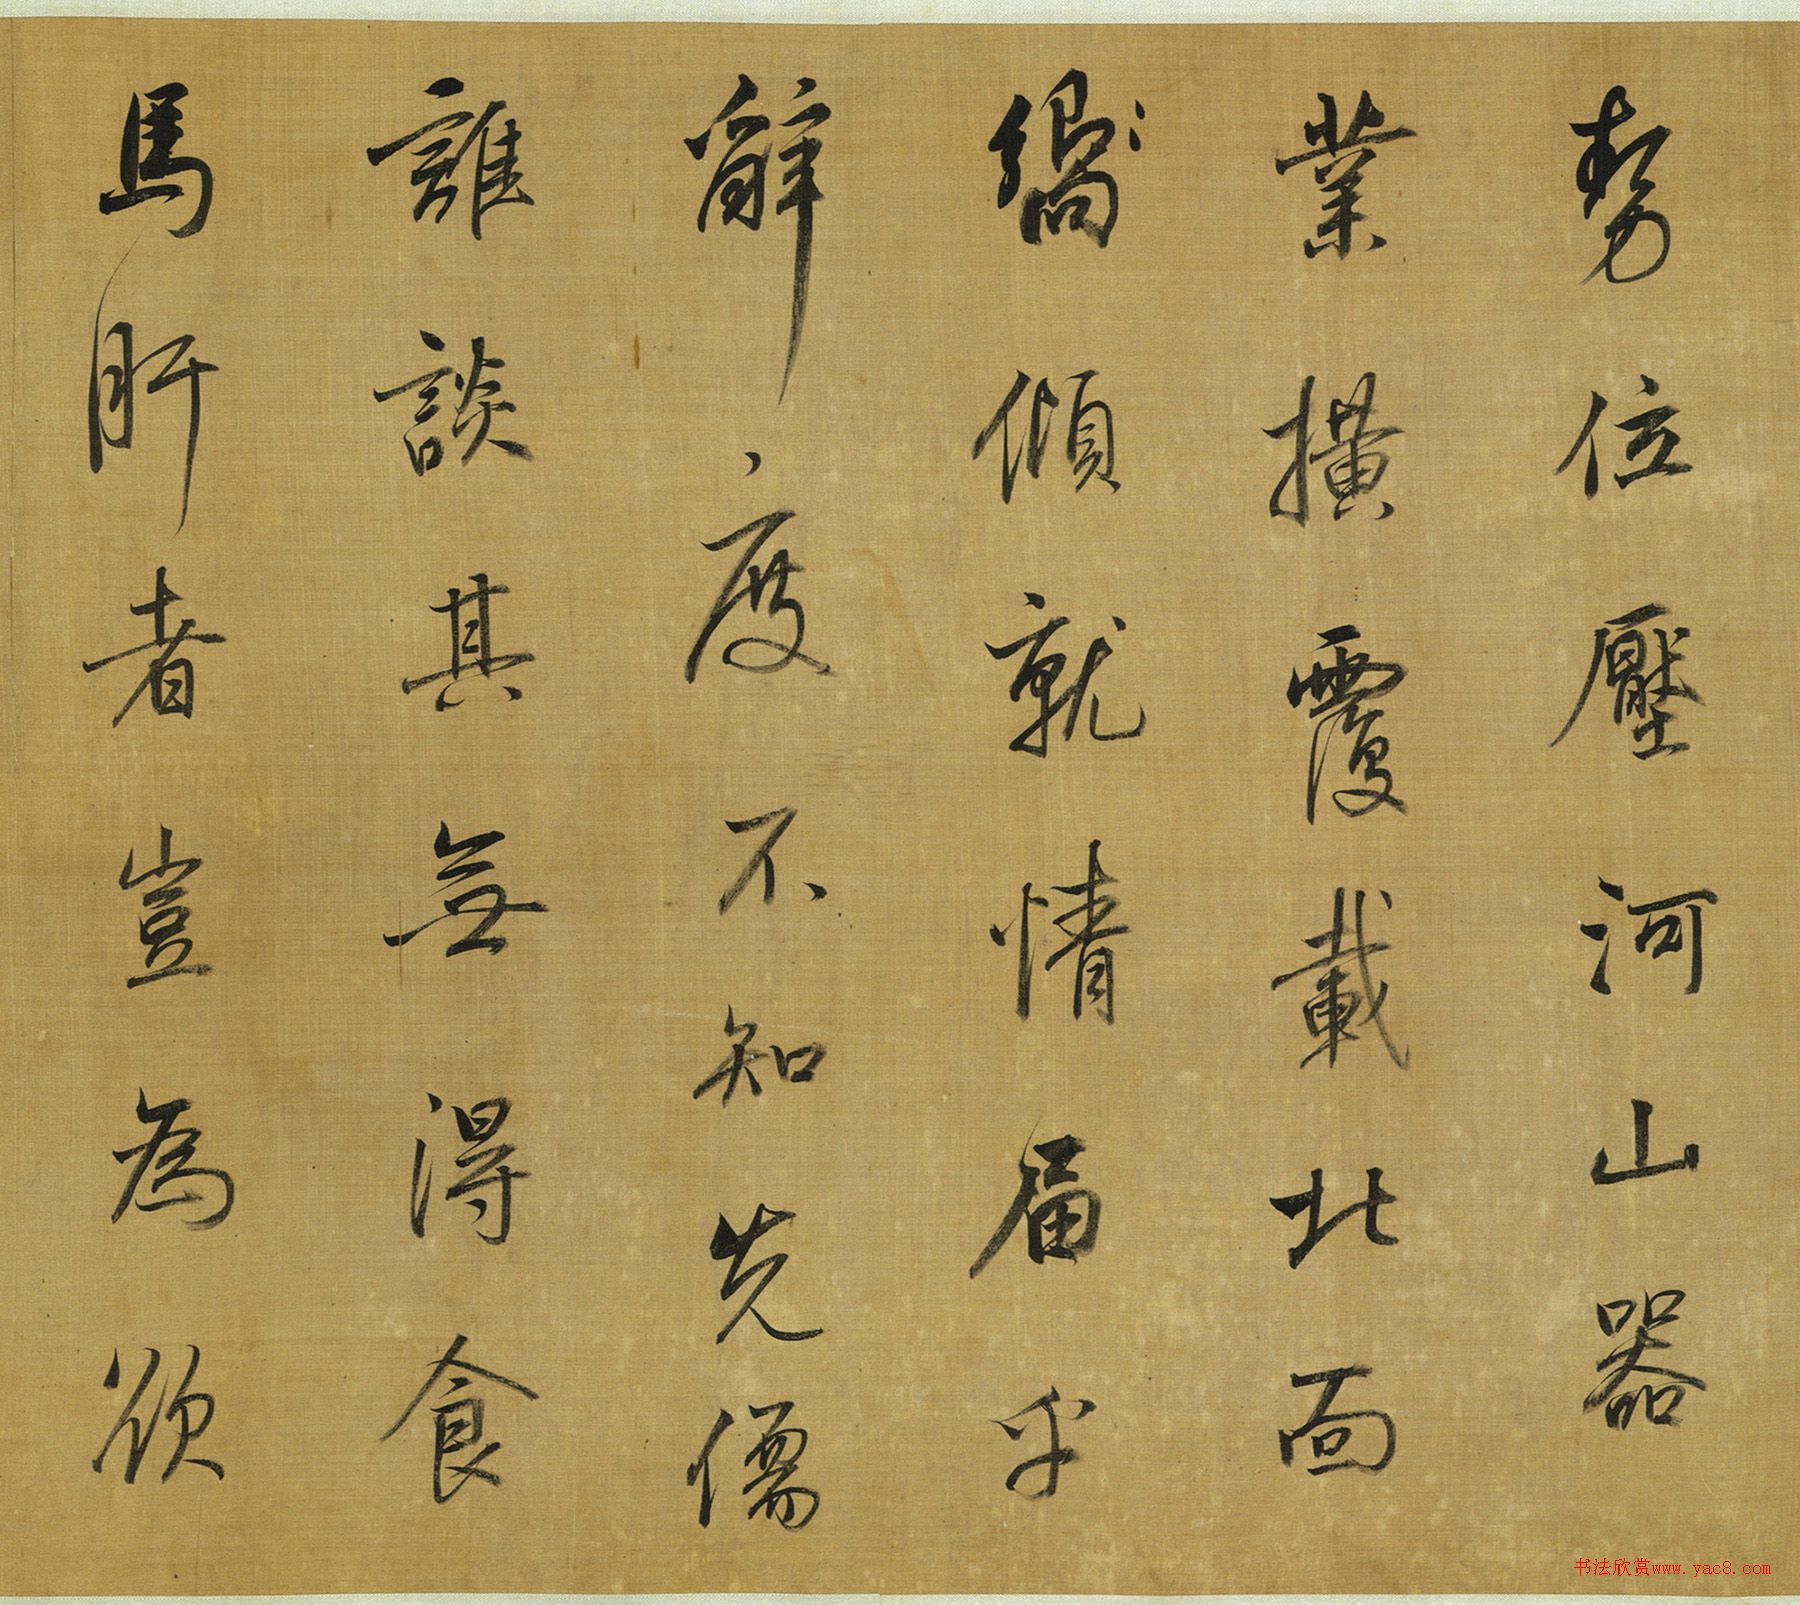 勢位壓河山器
業擴覆載北面
傾就情屆乎
辭度不知先儒
誰談其無得食
馬肝者豈為欲
书法欣赏www.yac8.com